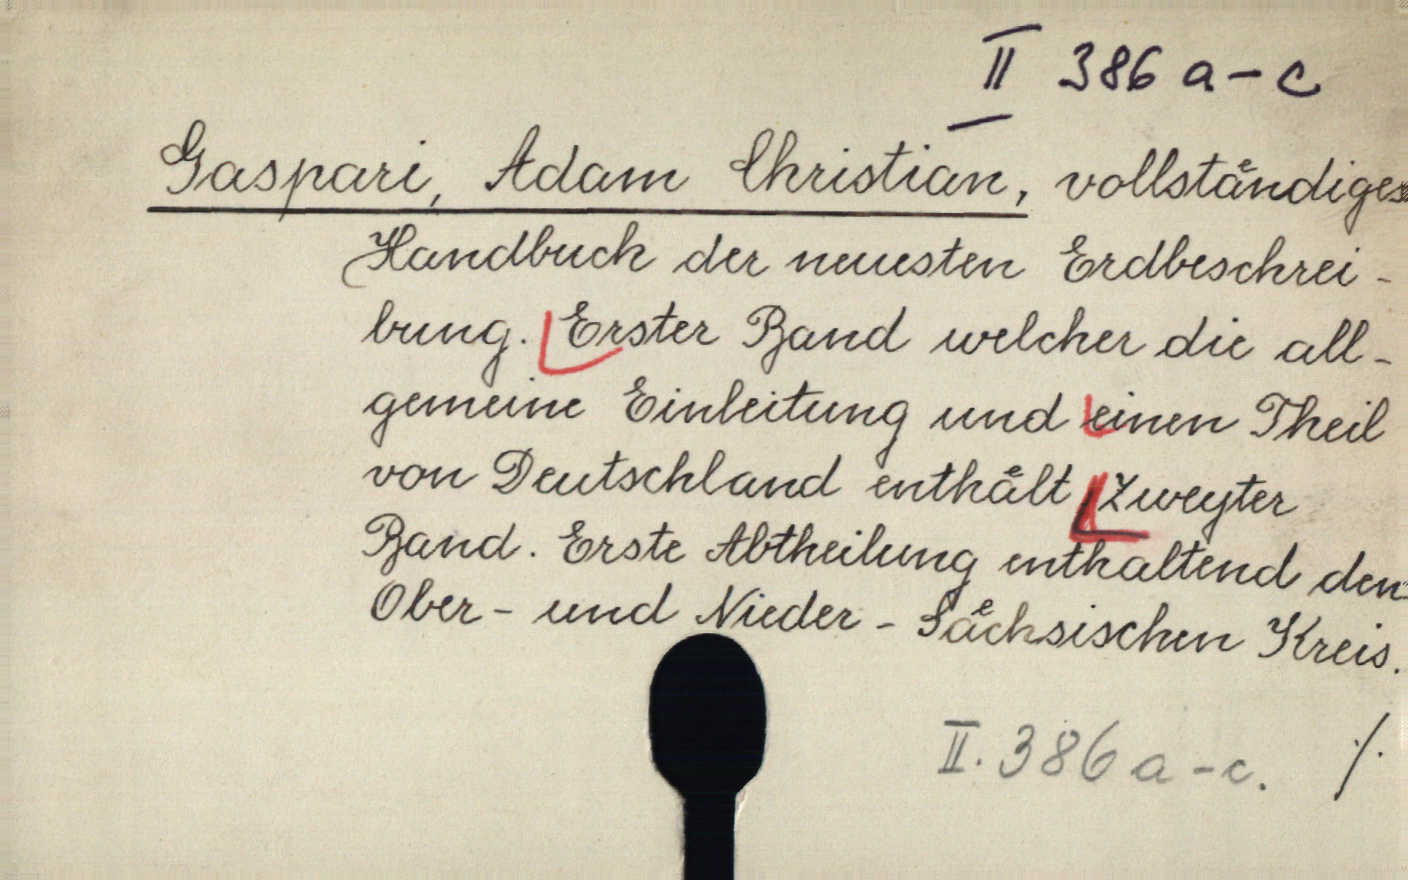 II 386 a-c
Gaspari, Adam Christian, vollståndiges
Handbuch der neuesten Erdbeschrei-
bung. Erster Band welcher die all-
gemeine Einleitung und einen Theil
von Deutschland enthålt Zweyter
Band. Erste Abtheilung enthaltend den
Ober- und Nieder-Såchsischen Kreis.
II. 386 a-c. ./.